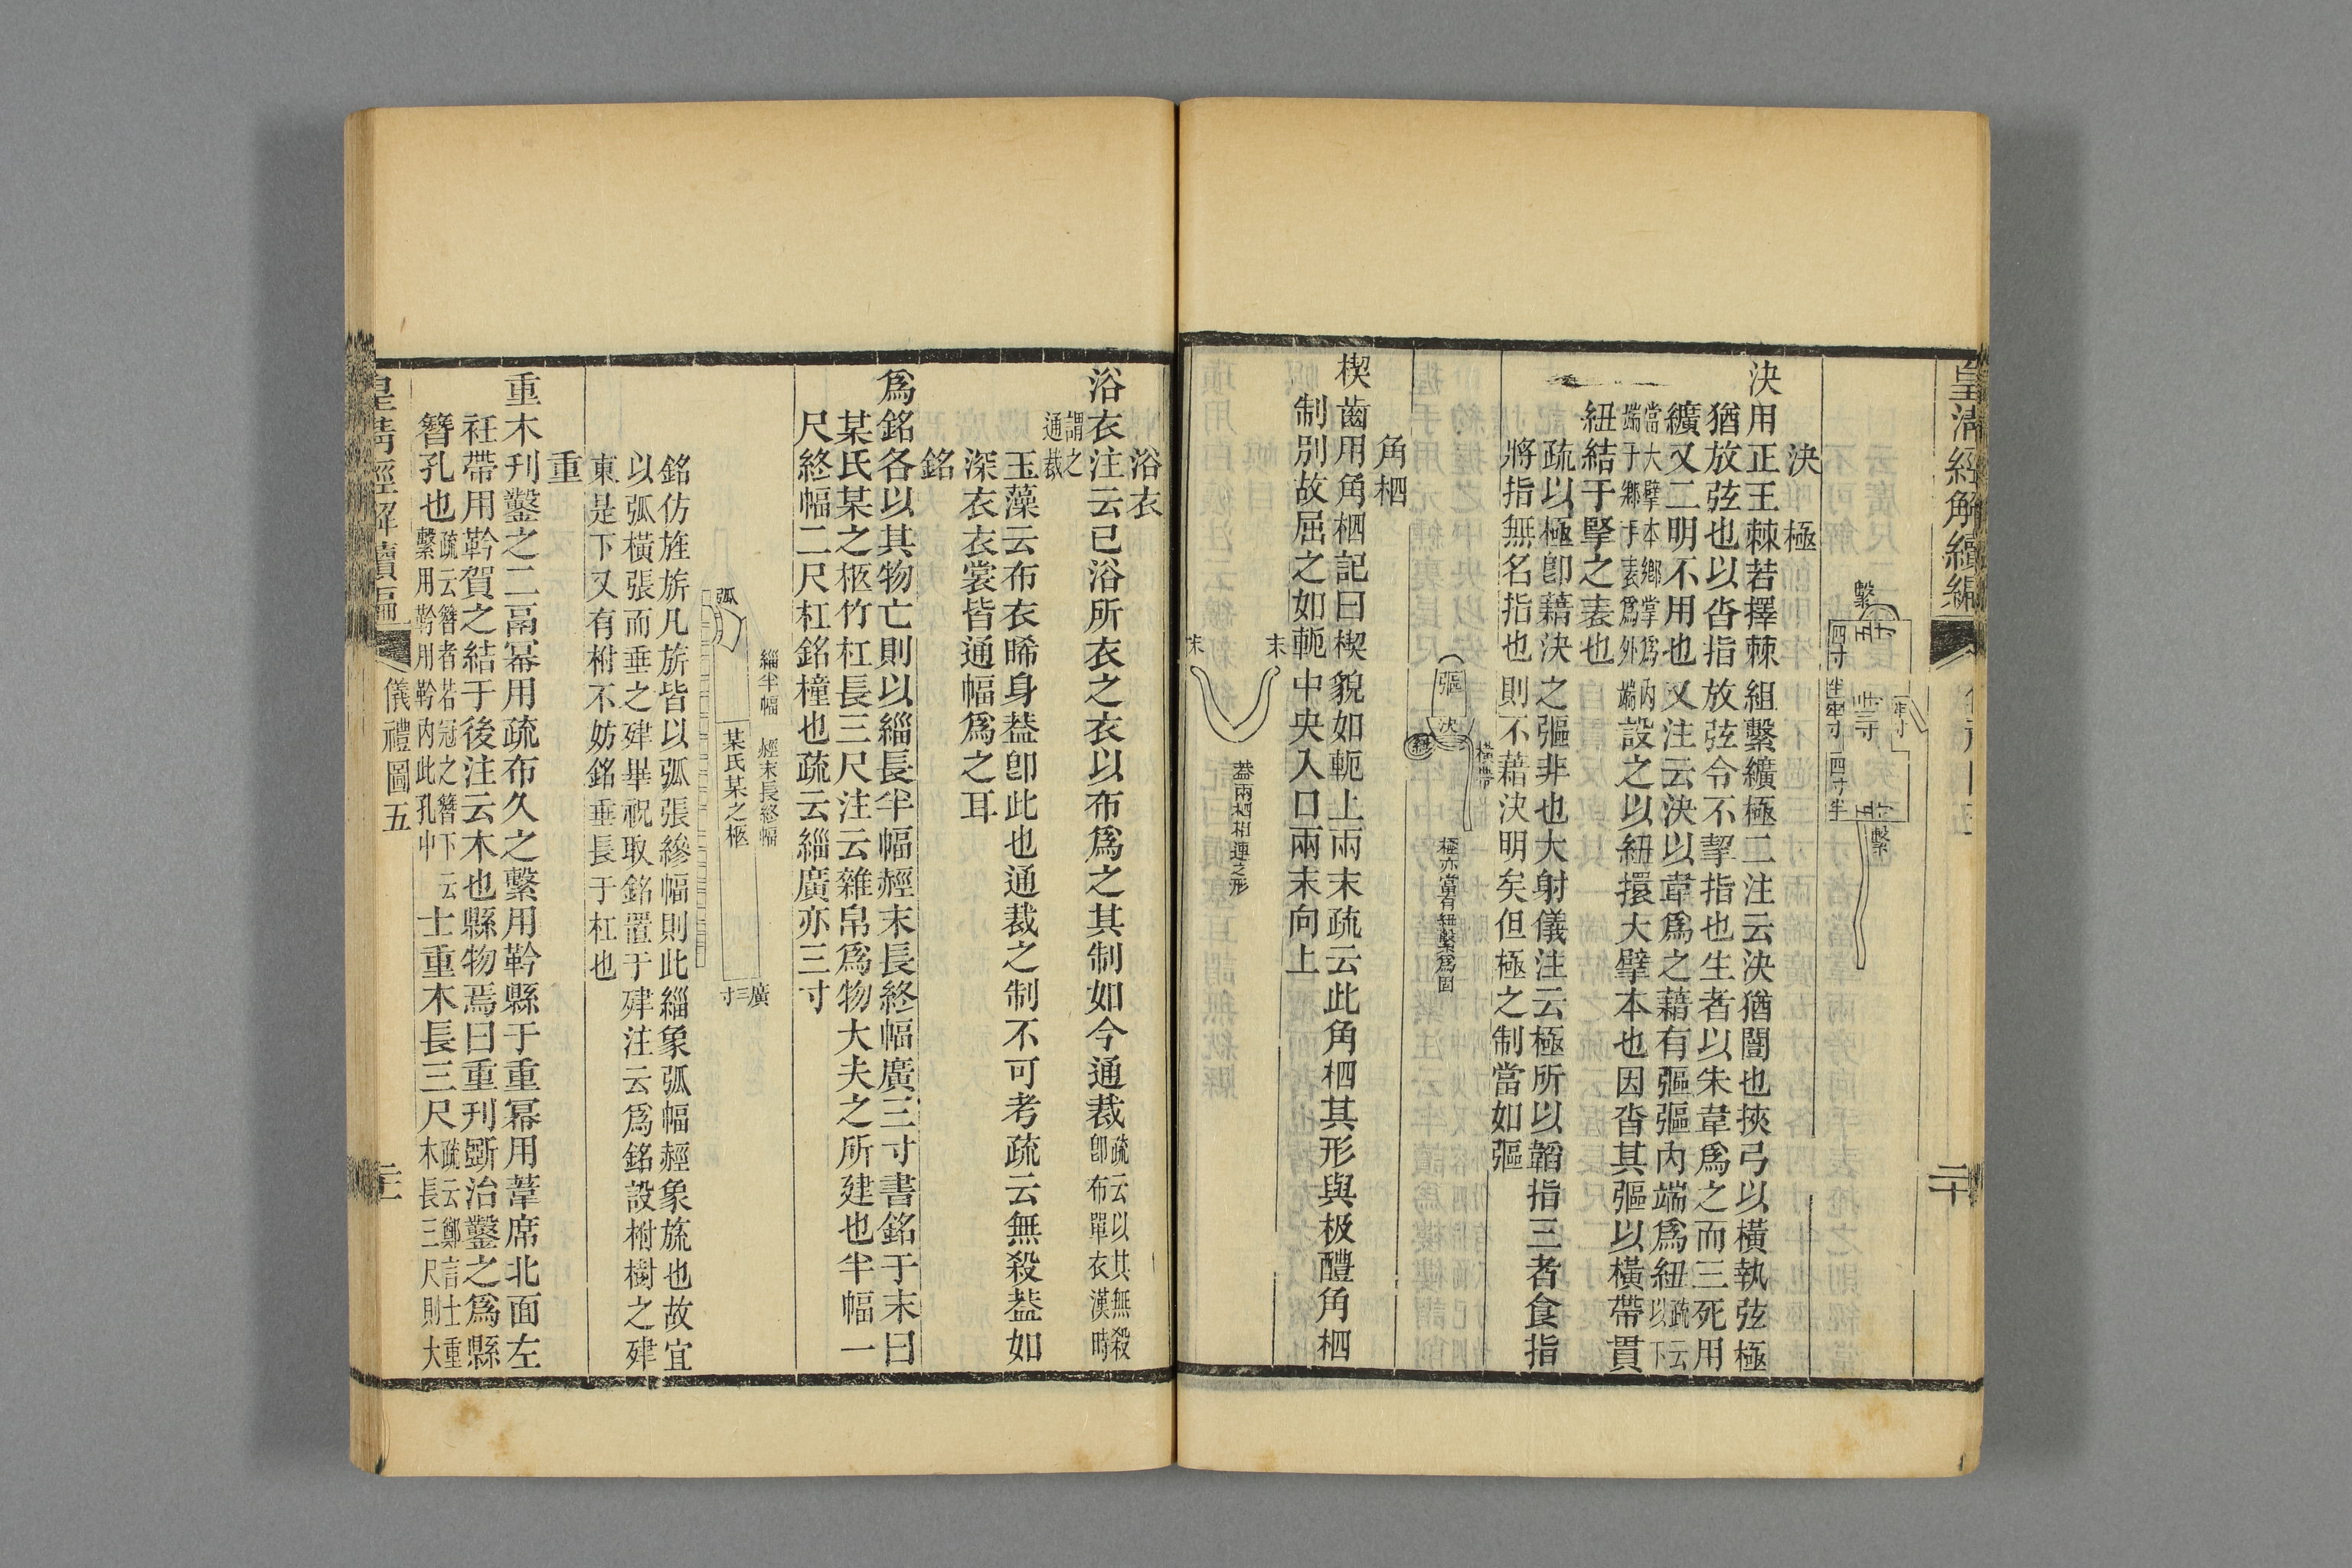 皇淸經解續編
二十
繫
五寸
四寸半
半寸
三寸
半寸
四寸半
五寸
繫
決　極
決用正王棘若擇棘組繫纊極二注云決猶闓也挾弓以橫執弦極
猶放弦也以沓指放弦令不挈指也生者以朱韋爲之而三死用
纊又二明不用也又注云決以韋爲之藉有彄彄內端爲紐疏云以下
當大擘本鄉掌爲內端于鄉手表爲外端設之以紐擐大擘本也因沓其彄以橫帶貫
紐結于掔之表也
疏以極卽藉決之彄非也大射儀注云極所以韜指三者食指
將指無名指也則不藉決明矣但極之制當如彄
彄
決
紐
橫帶
極亦當有紐繫爲固
角柶
楔齒用角柶記曰楔貌如軛上兩末疏云此角柶其形與柶醴角柶
制別故屈之如軛中央入口兩末向上
末
末
葢兩柶相連之形
浴衣
浴衣注云已浴所衣之衣以布爲之其制如今通裁疏云以其無殺卽布單衣漢時
謂之通裁
玉藻云布衣晞身葢卽此也通裁之制不可考疏云無殺葢如
深衣衣裳皆通幅爲之耳
銘
爲銘各以其物亡則以緇長半幅䞓末長終幅廣三寸書銘于末曰
某氏某之柩竹杠長三尺注云雜帛爲物大夫之所建也半幅一
尺終幅二尺杠銘橦也疏云緇廣亦三寸
緇半幅　䞓末長終幅
弧
某氏某之柩
廣三寸
銘仿旌旂凡旂皆以弧張縿幅則此緇象弧幅䞓象旒也故宜
以弧橫張而垂之肂畢祝取銘置于肂注云爲銘設柎樹之肂
東是下又有柎不妨銘垂長于杠也
重
重木刊鑿之二鬲冪用疏布久之繫用靲縣于重冪用葦席北面左
衽帶用靲賀之結于後注云木也縣物焉曰重刊斲治鑿之爲縣
簪孔也疏云簪者若冠之簪下云繫用靲用靲內此孔中士重木長三尺疏云鄭言士重木長三尺則大
皇淸經解續編
儀禮圖五